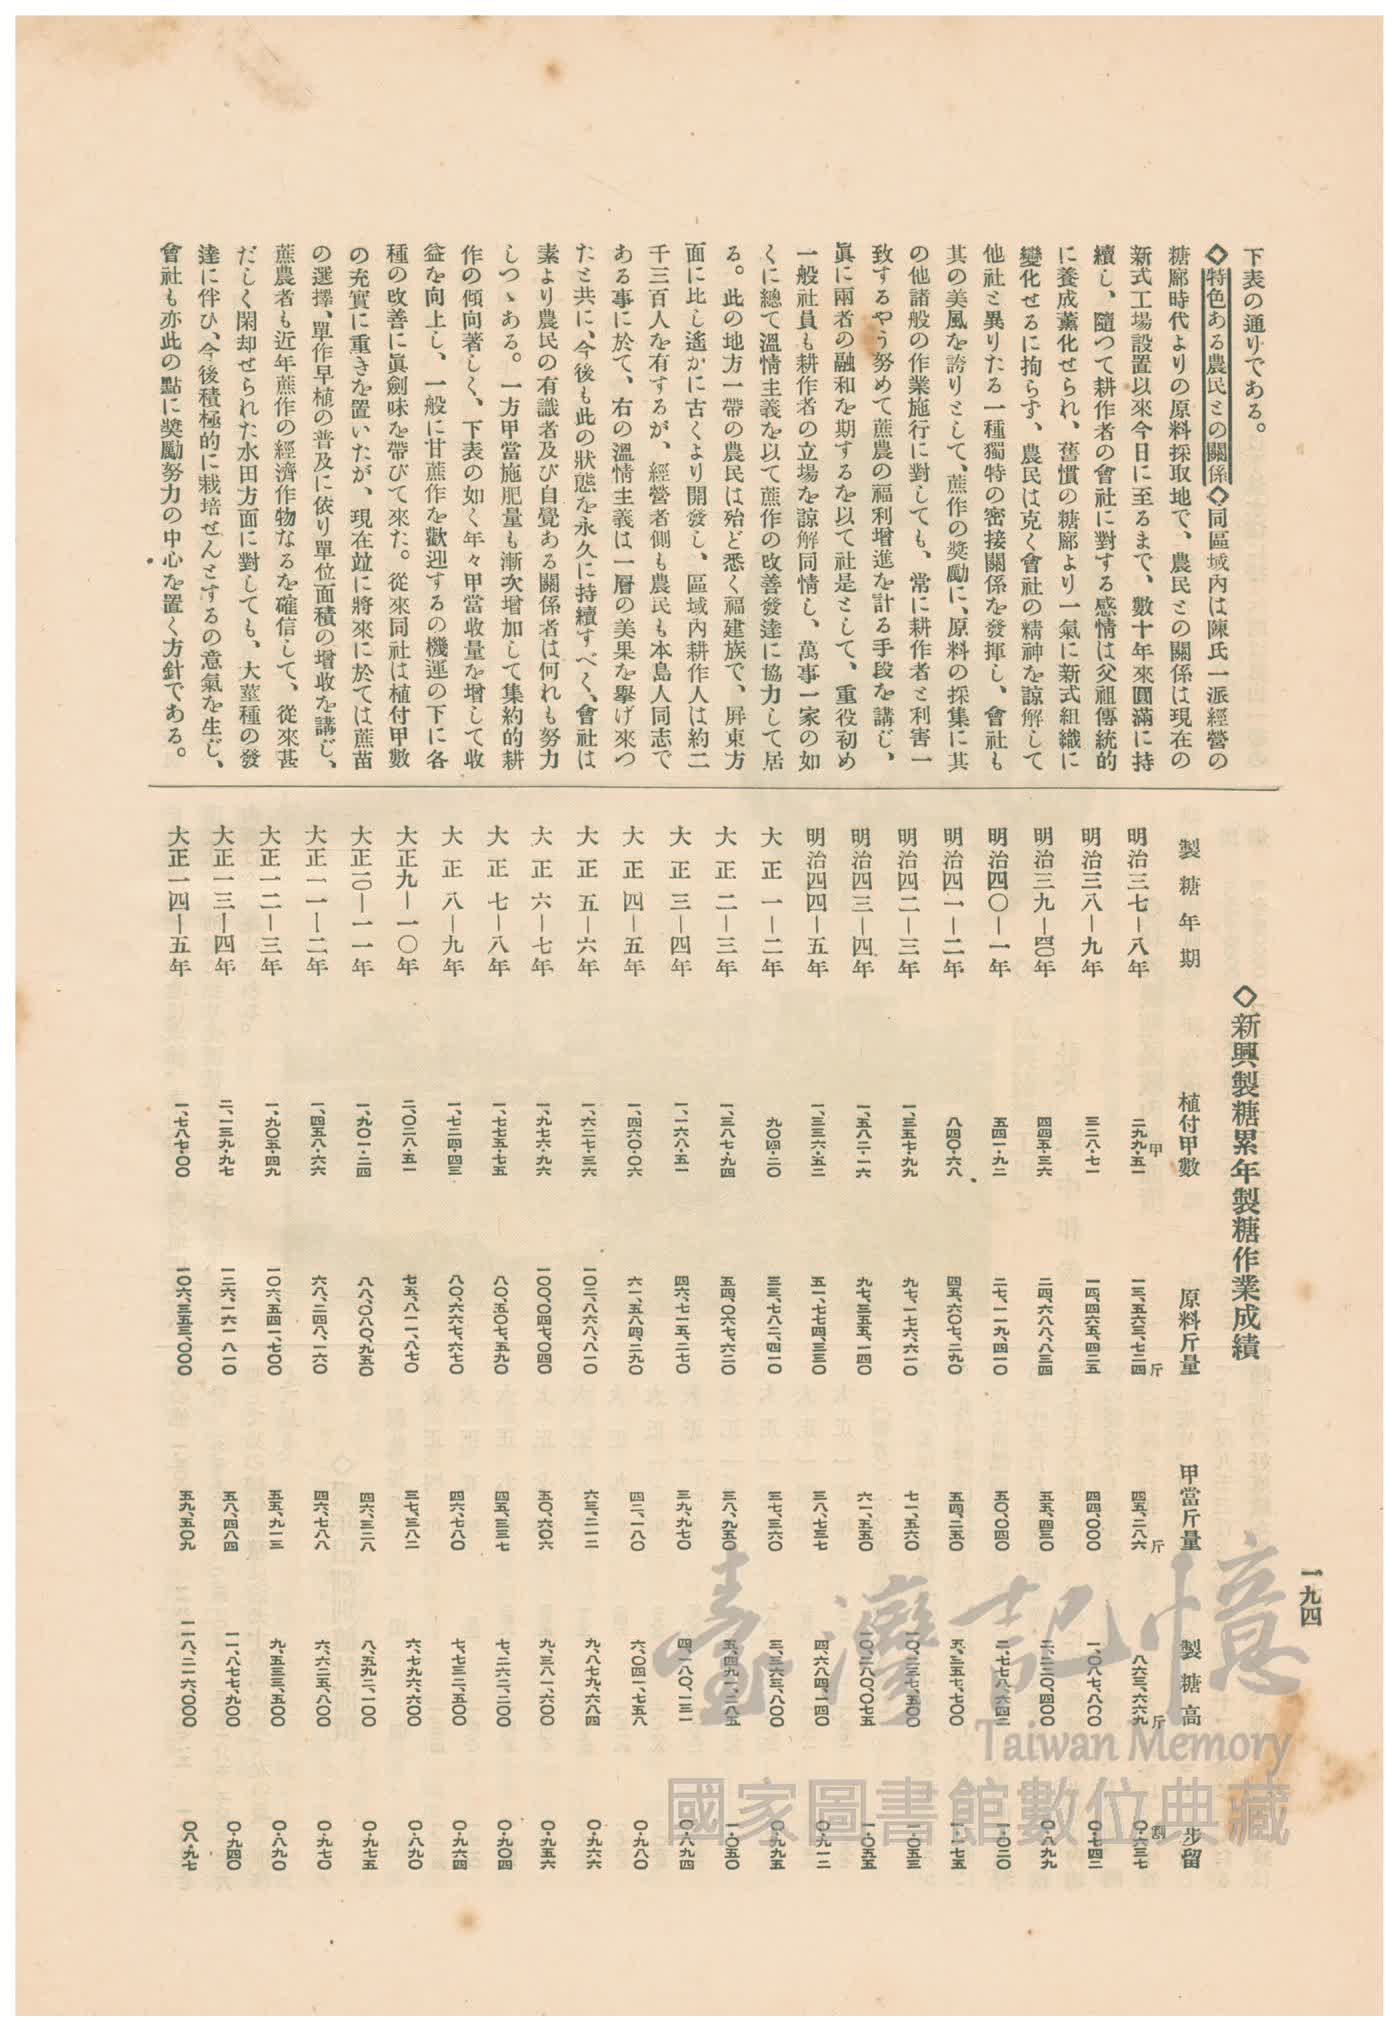 下表の通りである。
◇特色ある農民との關係◇同區域內は陳氏一派經營の
糖廍時代よりの原料採取地で、農民との關係は現在の
新式工場設置以來今日に至るまで、數十年來圓滿に持
續し、隨つて耕作者の會社に對する感情は父祖傳統的
に養成薰化せられ、舊慣の糖廍より一氣に新式組織に
變化せるに拘らず、農民は克く會社の精神を諒解して
他社と異りたる一種獨特の密接關係を發揮し、會社も
其の美風を誇りとして、蔗作の奬勵に、原料の採集に其
の他諸般の作業施行に對しても、常に耕作者と利害一
致するやう努めて蔗農の福利增進を計る手段を講じ、
眞に兩者の融和を期するを以て社是として、重役初め
一般社員も耕作者の立場を諒解同情し、萬事一家の如
くに總て溫情主義を以て蔗作の改善發達に協力して居
る。此の地方一帶の農民は殆ど悉く福建族で、屏東方
面に比し遙かに古くより開發し、區域內耕作人は約二
千三百人を有するが、經營者側も農民も本島人同志で
ある事に於て、右の溫情主義は一層の美果を擧げ來つ
たと共に、今後も此の狀態を永久に持續すべく、會社は
素より農民の有識者及び自覺ある關係者は何れも努力
しつゝある。一方甲當施肥量も漸次增加して集約的耕
作の傾向著しく、下表の如く年々甲當收量を增して收
益を向上し、一般に甘蔗作を歡迎するの機運の下に各
種の改善に眞劍味を帶びて來た。從來同社は植付甲數
の充實に重きを置いたが、現在竝に將來に於ては蔗苗
の選擇、單作早植の普及に依り單位面積の增收を講じ、
蔗農者も近年蔗作の經濟作物なるを確信して、從來甚
だしく閑却せられた水田方面に對しても、大莖種の發
達に伴ひ、今後積極的に栽培せんとするの意氣を生じ、
會社も亦此の點に奬勵努力の中心を置く方針である。
◇新興製糖累年製糖作業成績
製糖年期 植付甲數 原料斤量 甲當斤量 製糖高 步留
甲 斤 斤 斤 割
明治三七―八年 二九九・五一 一三、五六三、七二四 四五、二八六 八六三、六六九 〇・六三七
明治三八―九年 三二八・七一 一四、四六五、四二五 四四、〇〇〇 一、〇八七、八〇〇 〇・七四二
明治三九―四〇年 四四五・三六 二四、六八八、八三四 五五、四三〇 二、二二〇、四〇〇 〇・八九九
明治四〇―一年 五四一・九二 二七、一一九、四一〇 五〇、〇四〇 二、七七八、六四二 一・〇二〇
明治四一―二年 八四〇・六八 四五、六〇七、二九〇 五四、二五〇 五、三五七、七〇〇 一・一七五
明治四二―三年 一、三五七・九九 九七、一七六、六一〇 七一、五六〇 一〇、二三七、五〇〇 一・〇五三
明治四三―四年 一、五八二・一六 九七、三五五、一四〇 六一、五五〇 一〇、二八〇、〇七五 一・〇五五
明治四四―五年 一、三三六・五二 五一、七七四、三三〇 三八、七三七 四、六八四、一四〇 〇・九一二
大正一―二年 九〇四・二〇 三三、七八二、四一〇 三七、三六〇 三、三六三、八〇〇 〇・九九五
大正二―三年 一、三八七・九四 五四、〇六七、六二〇 三八、九五〇 五、四九一、二八五 一・〇五〇
大正三―四年 一、一六八・五一 四六、七一五、二七〇 三九、九七〇 四、一八〇、一三一 〇・八九四
大正四―五年 一、四六〇・〇六 六一、五八四、二九〇 四二、一八〇 六、〇四一、七五八 〇・九八〇
大正五―六年 一、六二七・三六 一〇二、八六八、八一〇 六三、二一二 九、八七九、六八四 〇・九六六
大正六―七年 一、九七六・九六 一〇〇、〇四七、〇四〇 五〇、六〇六 九、三八一、六〇〇 〇・九五六
大正七―八年 一、七七五・七五 八〇、五〇七、五九〇 四五、三三七 七、二六二、二〇〇 〇・九〇四
大正八―九年 一、七二四・四三 八〇、六六七、六七〇 四六、七八〇 七、七三二、五〇〇 〇・九六四
大正九―一〇年 二、〇二八・五一 七五、八一一、八七〇 三七、三八二 六、七九六、六〇〇 〇・八九〇
大正一〇―一一年 一、九〇一・二四 八八、〇八〇、九五〇 四六、三二八 八、五九二、一〇〇 〇・九七五
大正一一―二年 一、四五八・六六 六八、二四八、一六〇 四六、七八八 六、六二五、八〇〇 〇・九七〇
大正一二―三年 一、九〇五・四九 一〇六、五四一、七〇〇 五五、九一三 九、五三三、五〇〇 〇・八九〇
大正一三―四年 二、一三九・九七 一二六、一六一、八一〇 五八、四八四 一一、八七七、九〇〇 〇・九四〇
大正一四―五年 一、七八七・〇〇 一〇六、三五三、〇〇〇 五九、五〇九 一一八、二一六、〇〇〇 〇八・九七
一九四
臺灣記憶
Taiwan Memory
國家圖書館數位典藏